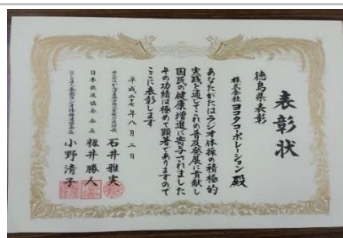 表彰状
徳島県表彰
株式会社ヨコタコーポレーション殿
あなたがたはラジオ体操の積極的
実践を通じてこれの普及発展に貢献し
国民の健康増進に寄与されました
その功績は極めて顕著でありますので
ここに表彰します
平成二十七年八月二日
石井雅実
日本放送協会会長 籾井勝人
小野清子